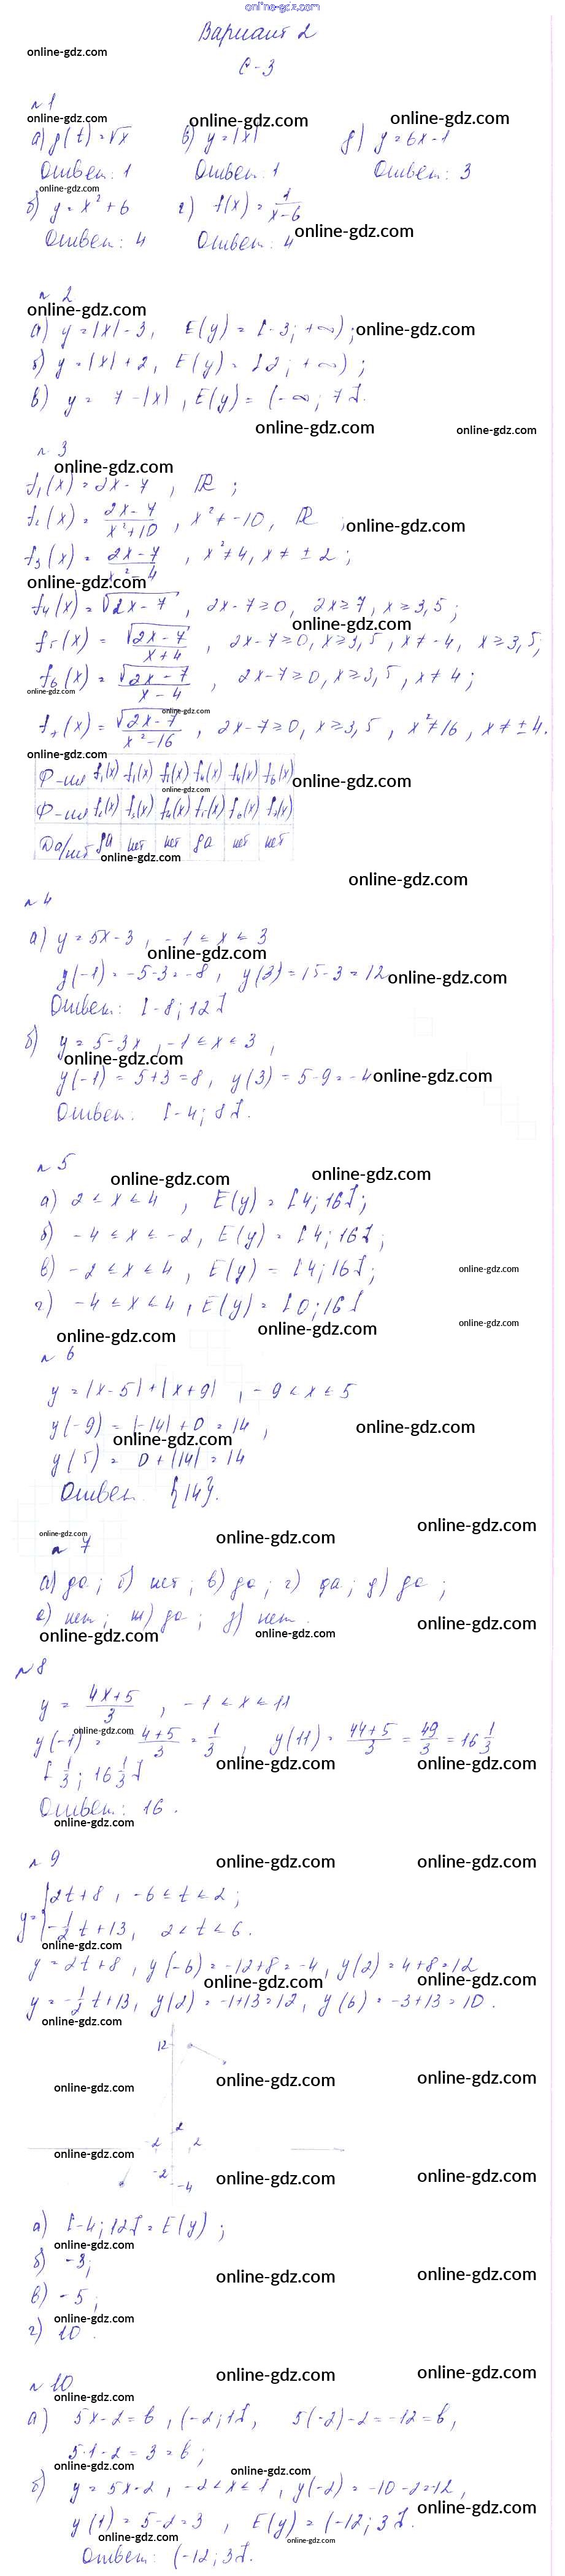 online-gdz.com
Вариант 2
online-gdz.com
С-3
№1
online-gdz.com online-gdz.com online-gdz.com
а) g(t) = √x в) y = |x| д) y = 6x - 1
Ответ: 1 Ответ: 1 Ответ: 3
online-gdz.com
б) y = x² + 6 г) f(x) = 1/(x-6)
Ответ: 4 Ответ: 4 online-gdz.com
№ 2
online-gdz.com
а) y = |x| - 3, E(y) = [-3; +∞); online-gdz.com
б) y = |x| + 2, E(y) = [2; +∞);
в) y = 7 - |x|, E(y) = (-∞; 7].
online-gdz.com online-gdz.com
№ 3
online-gdz.com
f₁(x) = 2x - 7, ℝ;
f₂(x) = (2x - 7)/(x² + 10), x² ≠ -10, ℝ; online-gdz.com
f₃(x) = (2x - 7)/(x² - 4), x² ≠ 4, x ≠ ± 2;
online-gdz.com
f₄(x) = √(2x - 7), 2x - 7 ≥ 0, 2x ≥ 7, x ≥ 3,5;
online-gdz.com
f₅(x) = √(2x - 7)/(x + 4), 2x - 7 ≥ 0, x ≥ 3,5, x ≠ -4, x ≥ 3,5;
f₆(x) = √(2x - 7)/(x - 4), 2x - 7 ≥ 0, x ≥ 3,5, x ≠ 4;
online-gdz.com
online-gdz.com
f₇(x) = √(2x - 7)/(x² - 16), 2x - 7 ≥ 0, x ≥ 3,5, x² ≠ 16, x ≠ ± 4.
online-gdz.com
Ф-ия f₁(x) f₁(x) f₁(x) f₄(x) f₄(x) f₆(x) online-gdz.com
online-gdz.com
Ф-ия f₂(x) f₃(x) f₄(x) f₅(x) f₆(x) f₇(x)
Да/нет да нет нет да нет нет
online-gdz.com
online-gdz.com
№ 4
а) y = 5x - 3, -1 ≤ x ≤ 3
online-gdz.com
y(-1) = -5-3 = -8, y(3) = 15-3 = 12 online-gdz.com
Ответ: [-8; 12]
б) y = 5-3x, -1 ≤ x ≤ 3,
online-gdz.com
y(-1) = 5+3 = 8, y(3) = 5-9 = -4 online-gdz.com
Ответ: [-4; 8].
№ 5
online-gdz.com online-gdz.com
а) 2 ≤ x ≤ 4, E(y) = [4; 16];
б) -4 ≤ x ≤ -2, E(y) = [4; 16];
в) -2 ≤ x ≤ 4, E(y) = [4; 16]; online-gdz.com
г) -4 ≤ x ≤ 4, E(y) = [0; 16]
online-gdz.com online-gdz.com online-gdz.com
№ 6
y = |x-5| + |x+9|, -9 ≤ x ≤ 5
y(-9) = |-14| + 0 = 14, online-gdz.com
online-gdz.com
y(5) = 0 + |14| = 14
Ответ {14}.
online-gdz.com online-gdz.com online-gdz.com
№ 7
а) да; б) нет; в) да; г) да; д) да;
е) нет; ж) да; з) нет.
online-gdz.com online-gdz.com online-gdz.com
№8
y = (4x+5)/3, -1 ≤ x ≤ 11
online-gdz.com
y(-1) = (4+5)/3 = 1/3, y(11) = (44+5)/3 = 49/3 = 16 1/3
online-gdz.com online-gdz.com
[1/3; 16 1/3]
Ответ: 16.
online-gdz.com
№ 9
online-gdz.com online-gdz.com
y = { 2t+8, -6 ≤ t ≤ 2;
-1/2 t + 13, 2 < t ≤ 6.
online-gdz.com
y = 2t+8, y(-6) = -12+8 = -4, y(2) = 4+8 = 12
online-gdz.com online-gdz.com
y = -1/2 t + 13, y(2) = -1+13 = 12, y(6) = -3+13 = 10.
online-gdz.com
12
online-gdz.com online-gdz.com online-gdz.com
2
-2 2
online-gdz.com
-2
-4
online-gdz.com online-gdz.com
а) [-4; 12] = E(y);
online-gdz.com
б) -3;
online-gdz.com online-gdz.com
в) -5;
online-gdz.com
г) 10.
№ 10
online-gdz.com online-gdz.com
online-gdz.com
а) 5x - 2 = b, (-2; 1], 5(-2) - 2 = -12 = b,
5·1 - 2 = 3 = b;
online-gdz.com online-gdz.com
б) y = 5x - 2, -2 < x ≤ 1, y(-2) = -10 - 2 = -12,
online-gdz.com
y(1) = 5-2 = 3, E(y) = (-12; 3].
online-gdz.com online-gdz.com
Ответ: (-12; 3].